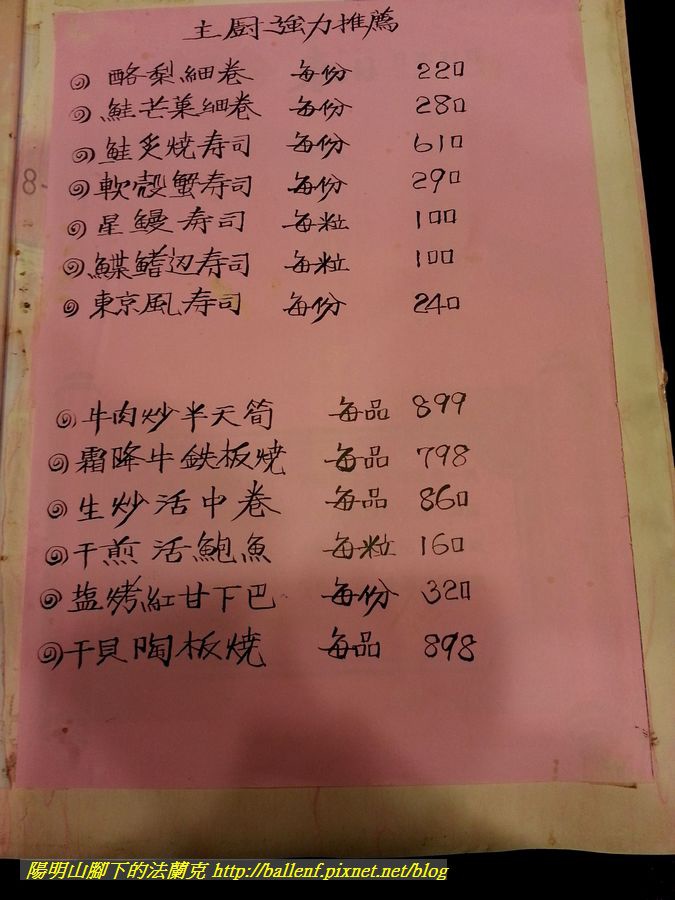 主廚強力推薦
酪梨細卷 每份 220
鮭芒菓細卷 每份 280
鮭炙燒寿司 每份 610
軟殼蟹寿司 每份 290
星鰻寿司 每粒 100
鰈鰭辺寿司 每粒 100
東京風寿司 每份 240
牛肉炒半天筍 每品 899
霜降牛鉄板燒 每品 798
生炒活中卷 每品 860
干煎活鮑魚 每粒 160
塩烤紅甘下巴 每份 320
干貝陶板燒 每品 898
8
陽明山腳下的法蘭克 http://ballenf.pixnet.net/blog